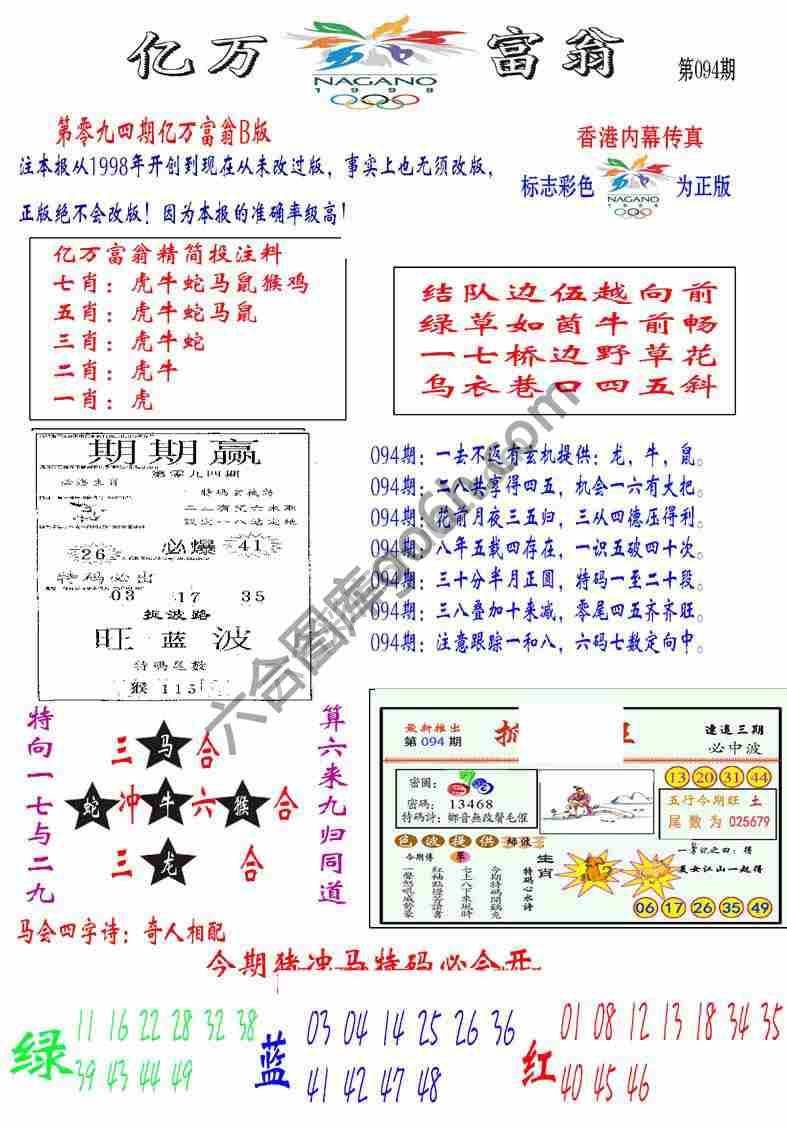 亿万富翁
NAGANO
1998
第094期
第零九四期亿万富翁B版
注本报从1998年开创到现在从未改过版，事实上也无须改版，
正版绝不会改版！因为本报的准确率级高！
香港内幕传真
标志彩色
NAGANO
1998
为正版
亿万富翁精简投注料
七肖：虎牛蛇马鼠猴鸡
五肖：虎牛蛇马鼠
三肖：虎牛蛇
二肖：虎牛
一肖：虎
结队边伍越向前
绿草如茵牛前畅
一七桥边野草花
乌衣巷口四五斜
期期赢
第零九四期
26
必爆
41
特码必出
03 17 35
捉波路
旺蓝波
特码尽数
猴115
094期：一去不返有玄机提供：龙，牛，鼠。
094期：二八共享得四五，机会一六有大把。
094期：花前月夜三五归，三从四德压得利。
094期：八年五载四存在，一识五破四十次。
094期：三十分半月正圆，特码一至二十段。
094期：三八叠加十来减，零尾四五齐齐旺。
094期：注意跟踪一和八，六码七数定向中。
六合图库go6h.com
特向一七与二九
三 马 合
蛇 冲 牛 六 猴 合
三 龙 合
算六来九归同道
马会四字诗：奇人相配
最新推出
第094期
速追三期
必中波
密图：
密碼：13468
特碼詩：鄉音無改鬢毛催
13 20 31 44
五行今期旺 土
尾数为 025679
色波提供
今期傳
一聲怒吼威勢豪
七上八下來現時
今期特碼開鷄兔
特碼心水诗
生肖
一字记之曰：得
美女江山一起得
06 17 26 35 49
今期猪冲马特码必会开
绿
11 16 22 28 32 38
39 43 44 49
蓝
03 04 14 25 26 36
41 42 47 48
红
01 08 12 13 18 34 35
40 45 46